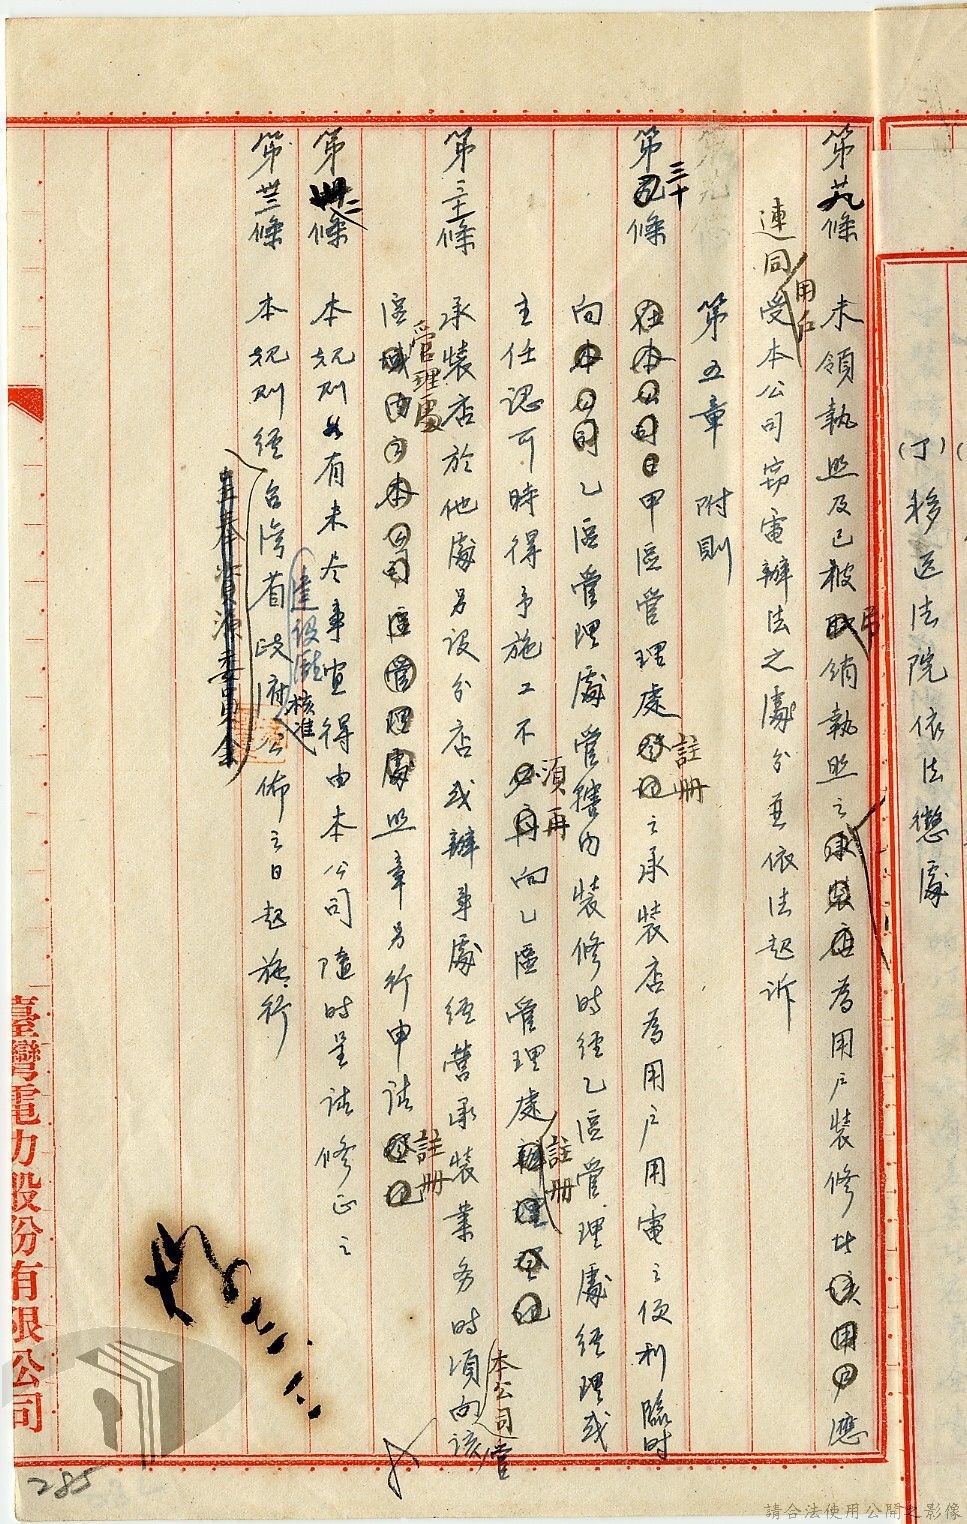 (丁)移送法院依法懲處
第廿九條 未領執照及已被吊銷執照之為用戶裝修者應
連同用戶受本公司竊電辦法之處分並依法起訴
第五章 附則
第三十條 甲區管理處註冊之承裝店為用戶用電之便利臨時
向乙區管理處管轄內裝修時經乙區管理處經理或
主任認可時得予施工不須再向乙區管理處註冊
第三十一條 承裝店於他處另設分店或辦事處經營承裝業务時須向該本公司管
區管理處照章另行申請註冊
第卅二條 本規則如有未尽事宜得由本公司隨時呈請修正之
第卅三條 本規則經台灣省政府建設廳核准公佈之日起施行
呈奉資源委員會
臺灣電力股份有限公司
285
請合法使用公開之影像